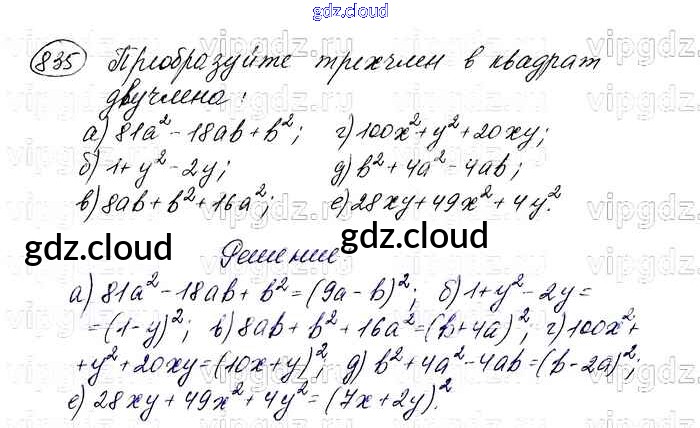 gdz.cloud
835 Преобразуйте трехчлен в квадрат
двучлена:
а) 81a² - 18ab + b²; г) 100x² + y² + 20xy;
б) 1 + y² - 2y; д) b² + 4a² - 4ab;
в) 8ab + b² + 16a²; е) 28xy + 49x² + 4y².
gdz.cloud gdz.cloud
Решение
а) 81a² - 18ab + b² = (9a - b)²; б) 1 + y² - 2y =
= (1 - y)²; в) 8ab + b² + 16a² = (b + 4a)²; г) 100x² +
+ y² + 20xy = (10x + y)²; д) b² + 4a² - 4ab = (b - 2a)²;
е) 28xy + 49x² + 4y² = (7x + 2y)².